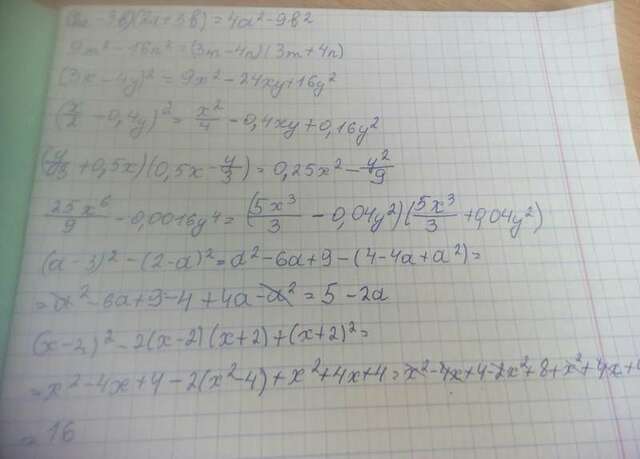 (2a - 3b)(2a + 3b) = 4a² - 9b²
9m² - 16n² = (3m - 4n)(3m + 4n)
(3x - 4y)² = 9x² - 24xy + 16y²
(x/2 - 0,4y)² = x²/4 - 0,4xy + 0,16y²
(y/3 + 0,5x)(0,5x - y/3) = 0,25x² - y²/9
25x⁶/9 - 0,0016y⁴ = (5x³/3 - 0,04y²)(5x³/3 + 0,04y²)
(a - 3)² - (2 - a)² = a² - 6a + 9 - (4 - 4a + a²) =
= a² - 6a + 9 - 4 + 4a - a² = 5 - 2a
(x - 2)² - 2(x - 2)(x + 2) + (x + 2)² =
= x² - 4x + 4 - 2(x² - 4) + x² + 4x + 4 = x² - 4x + 4 - 2x² + 8 + x² + 4x + 4
= 16